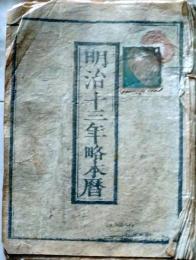 明治十三年略本暦